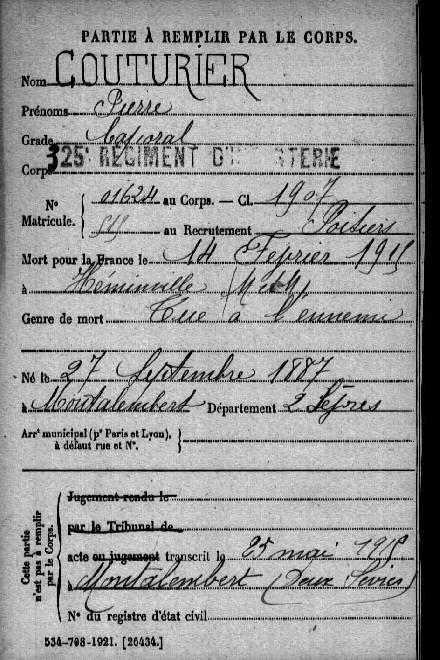 PARTIE À REMPLIR PAR LE CORPS.
Nom COUTURIER
Prénoms Pierre
Grade Caporal
Corps 325e RÉGIMENT D'INFANTERIE
N° Matricule. { 01624 au Corps. — Cl. 1907
519 au Recrutement Poitiers
Mort pour la France le 14 Février 1915
à Héminville (M et M)
Genre de mort Tué à l'ennemi
Né le 27 Septembre 1887
à Montalembert Département 2 Sèvres
Arrt municipal (pr Paris et Lyon), à défaut rue et N°. }
Cette partie n'est pas à remplir par le Corps.
Jugement rendu le
par le Tribunal de
acte ou jugement transcrit le 25 mai 1915
à Montalembert (Deux Sèvres)
N° du registre d'état civil
534-708-1921. [26434.]